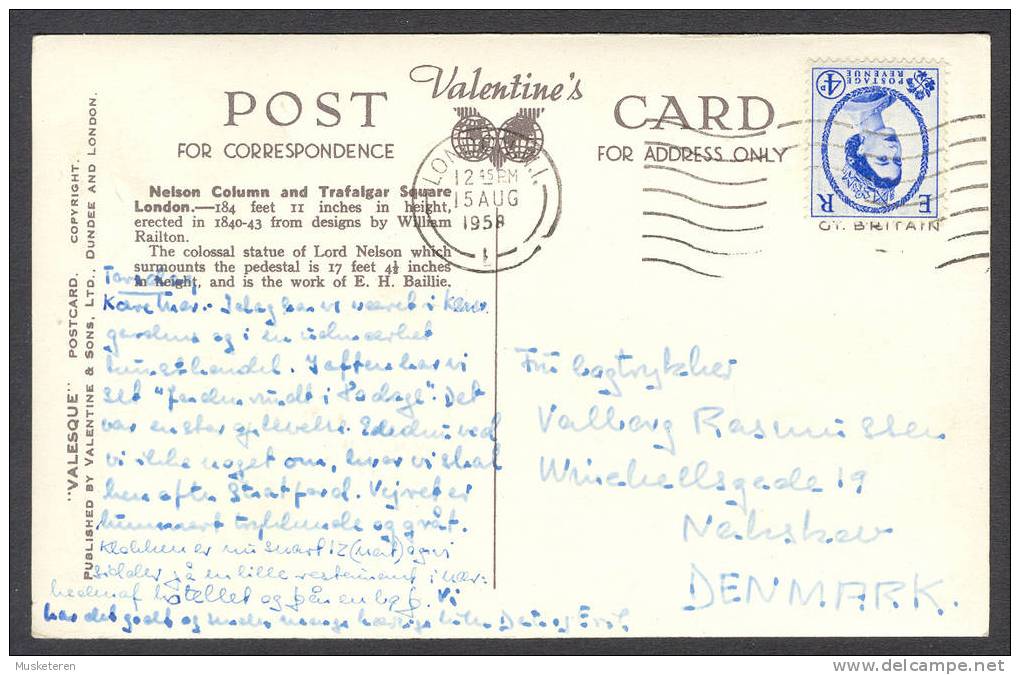 POST
Valentine's
CARD
FOR CORRESPONDENCE
FOR ADDRESS ONLY
Nelson Column and Trafalgar Square
London.—184 feet 11 inches in height,
erected in 1840-43 from designs by William
Railton.
The colossal statue of Lord Nelson which
surmounts the pedestal is 17 feet 4½ inches
in height, and is the work of E. H. Baillie.
"VALESQUE" POSTCARD. COPYRIGHT.
PUBLISHED BY VALENTINE & SONS, LTD., DUNDEE AND LONDON.
LONDON
12 45PM
15 AUG
1958
POSTAGE
REVENUE
4D
E R
GT. BRITAIN
Torsdag
Kære Mor. Idag har vi været i
og i en
I aften har vi
set "Jorden rundt i 80 dage". Det
var en stor oplevelse. Endnu ved
vi ikke noget om, hvor vi skal
hen efter Stratford. Vejret er
og gråt.
Klokken er nu snart 12 (nat) og vi
sidder på en lille restaurant i nær-
heden af hotellet og får en kop
Vi
har det godt og
Fru bogtrykker
Valborg Rasmussen
Winchellsgade 19
Nakskov
DENMARK.
Musketeren
http://www.delcampe.net